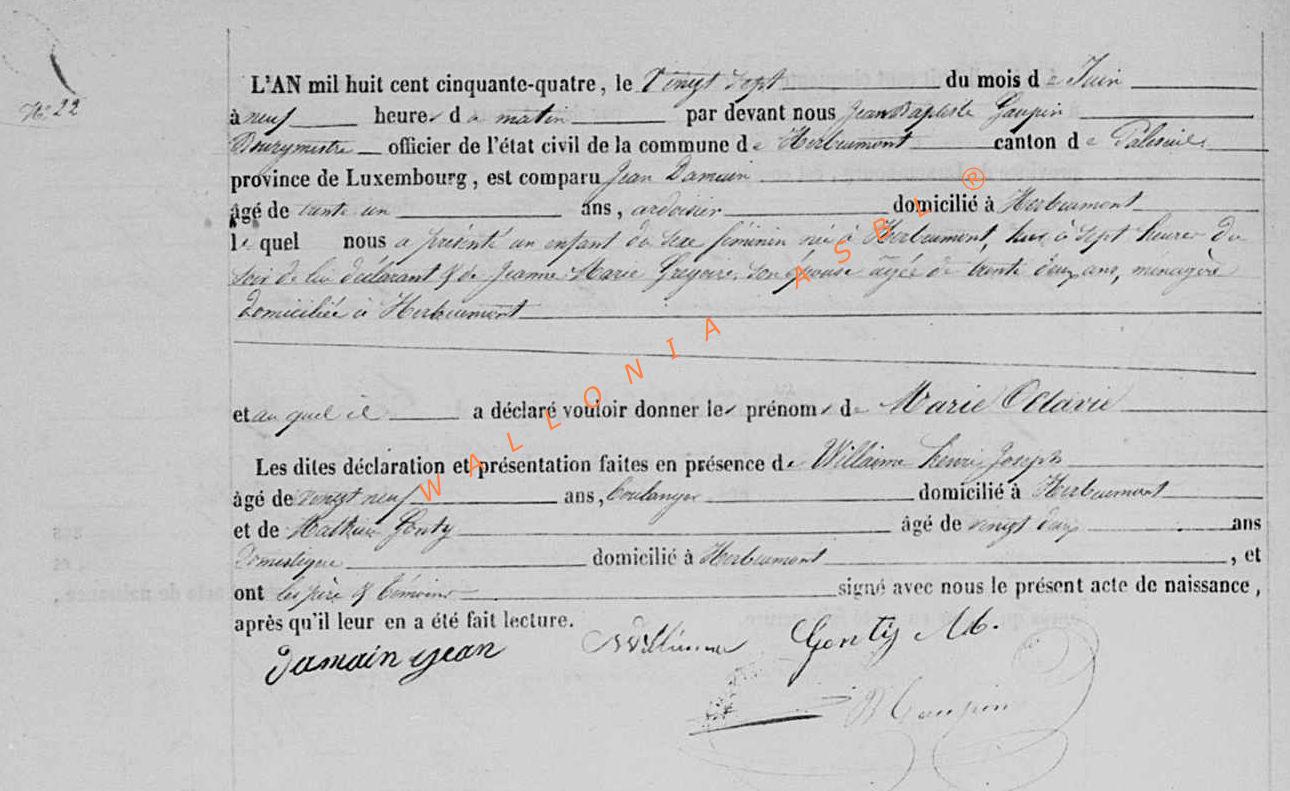 N° 22
L'AN mil huit cent cinquante-quatre, le Vingt Sept du mois de Juin
à neuf heures du matin par devant nous Jean Baptiste Gaupin
Bourgmestre officier de l'état civil de la commune de Herbeumont canton de Paliseul
province de Luxembourg, est comparu Jean Damain
âgé de trente un ans, ardoisier domicilié à Herbeumont
le quel nous a présenté un enfant du sexe féminin née à Herbeumont, hier à sept heures du
soir de lui déclarant & de Jeanne Marie Gregoire, son épouse agée de trente deux ans, ménagère
domiciliée à Herbeumont
et au quel il a déclaré vouloir donner les prénoms de Marie Octavie
Les dites déclaration et présentation faites en présence de Willaime henri Joseph
âgé de vingt neuf ans, boulanger domicilié à Herbeumont
et de Mathieu Gonty âgé de vingt deux ans
domestique domicilié à Herbeumont, et
ont les père & témoins signé avec nous le présent acte de naissance,
après qu'il leur en a été fait lecture.
Damain Jean Gonty M.
Gaupin
WALLONIA ASBL ®